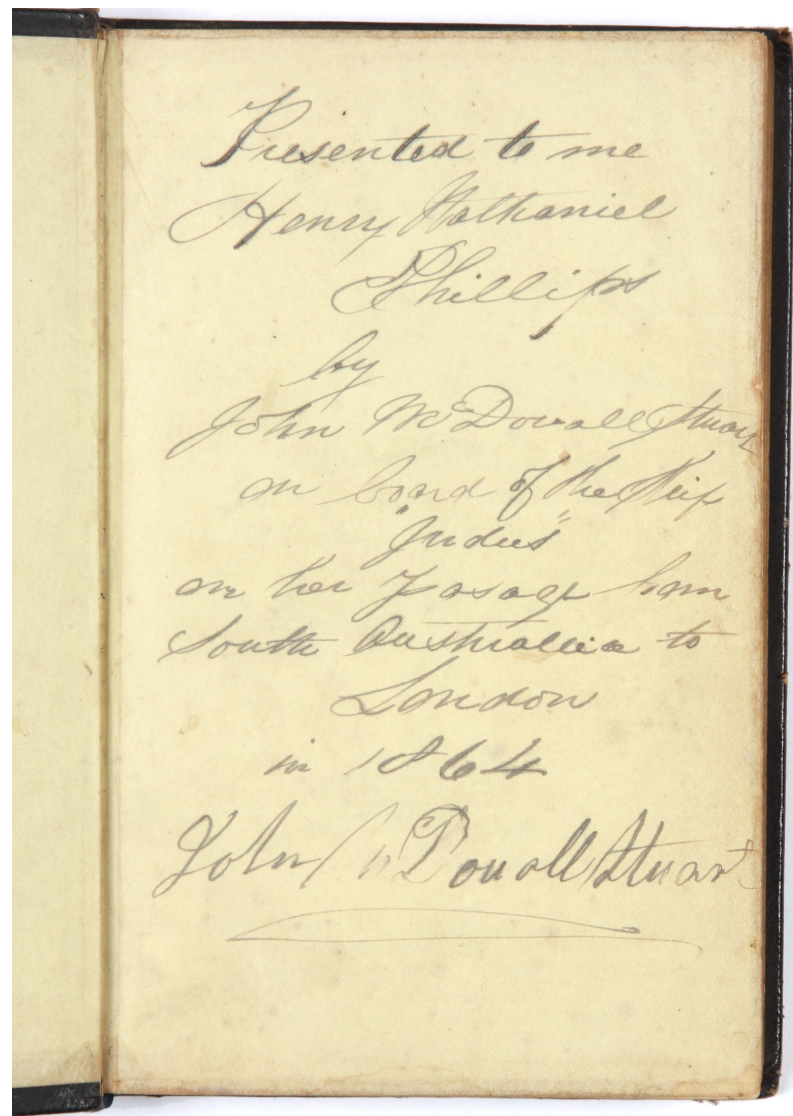 Presented to me
Henry Nathaniel
Phillips
by
John McDouall Stuart
on board of the Ship
"Indus"
on her pasage from
South Australia to
London
in 1864
John McDouall Stuart